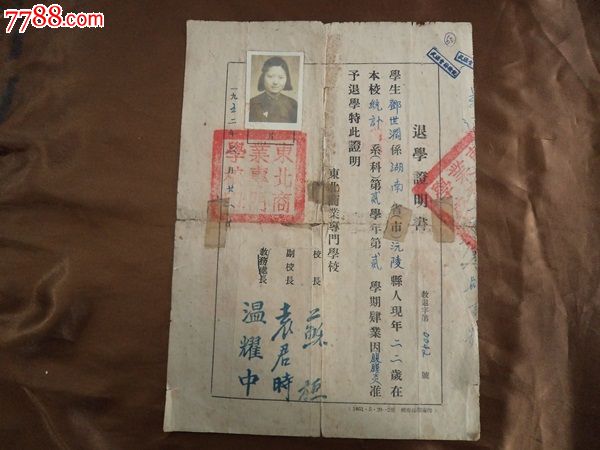 7788.com
中国收藏热线
退學證明書
教退字第0042號
學生鄧世瀾係湖南省(市)沅陵縣人現年二二歲在
本校統計系(科)第貳學年第貳學期肄業因腹膜炎准
予退學特此證明
東北商業專門學校
校長 蘇
副校長 袁君時
教務總長 温耀中
一九五二年 月廿 日
東北商業專門學校